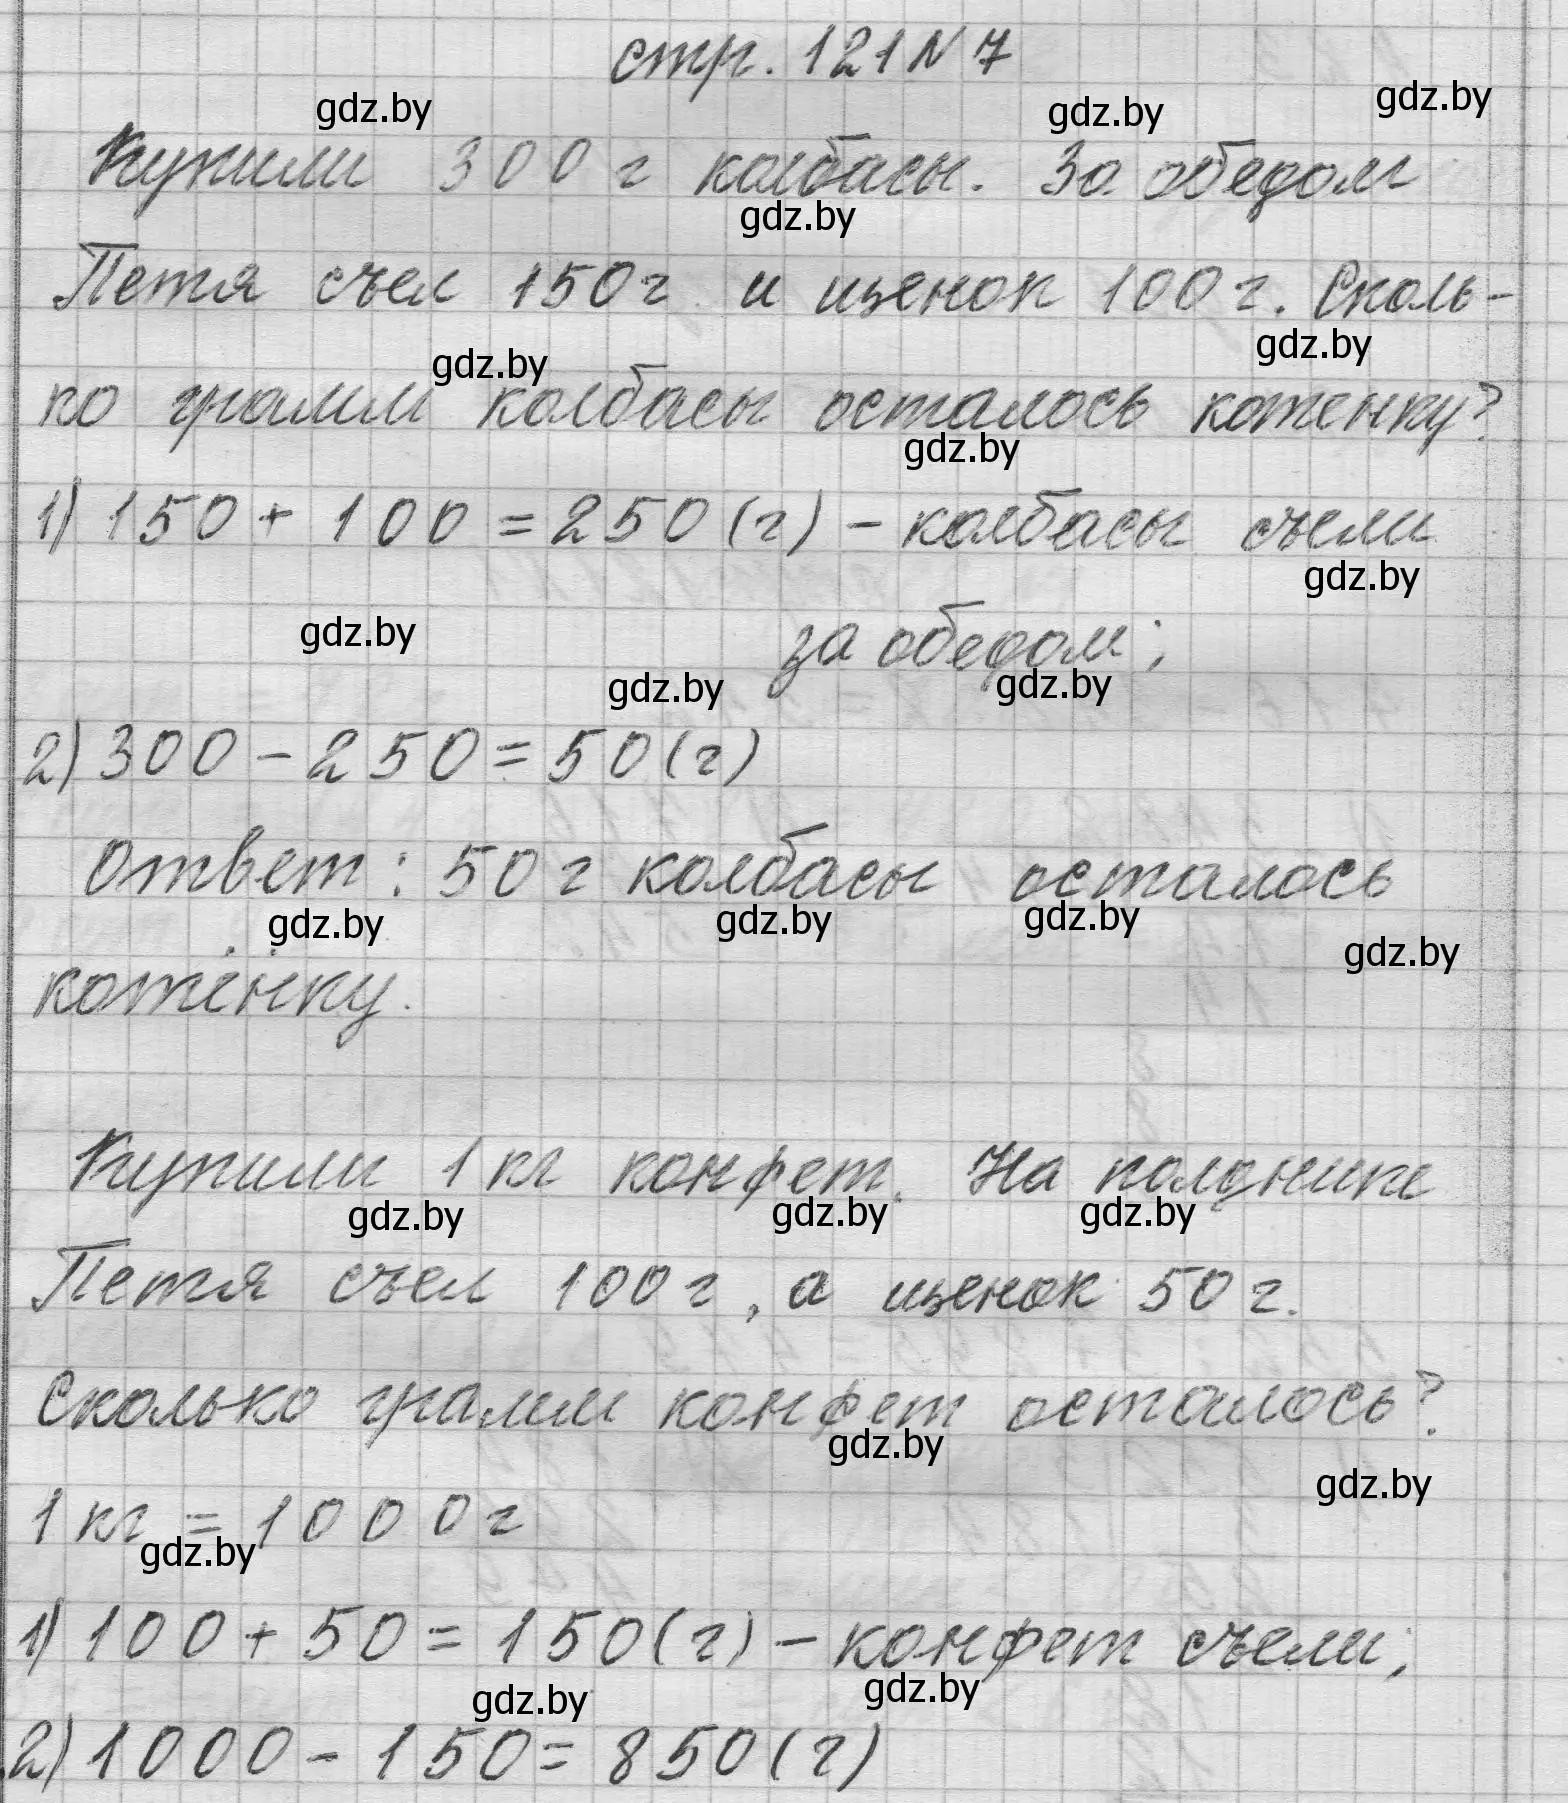 стр. 121 N 7
gdz.by gdz.by gdz.by
Купили 300 г колбасы. За обедом
gdz.by
Петя съел 150 г и щенок 100 г. Сколь-
gdz.by gdz.by
ко грамм колбасы осталось котенку?
gdz.by
1) 150 + 100 = 250 (г) - колбасы съели
gdz.by
за обедом;
gdz.by gdz.by gdz.by
2) 300 - 250 = 50 (г)
Ответ: 50 г колбасы осталось
gdz.by gdz.by gdz.by gdz.by
котёнку.
Купили 1 кг конфет. На полднике
gdz.by gdz.by gdz.by
Петя съел 100 г, а щенок 50 г.
Сколько грамм конфет осталось?
gdz.by gdz.by
1 кг = 1000 г
gdz.by
1) 100 + 50 = 150 (г) - конфет съели;
gdz.by gdz.by
2) 1000 - 150 = 850 (г)